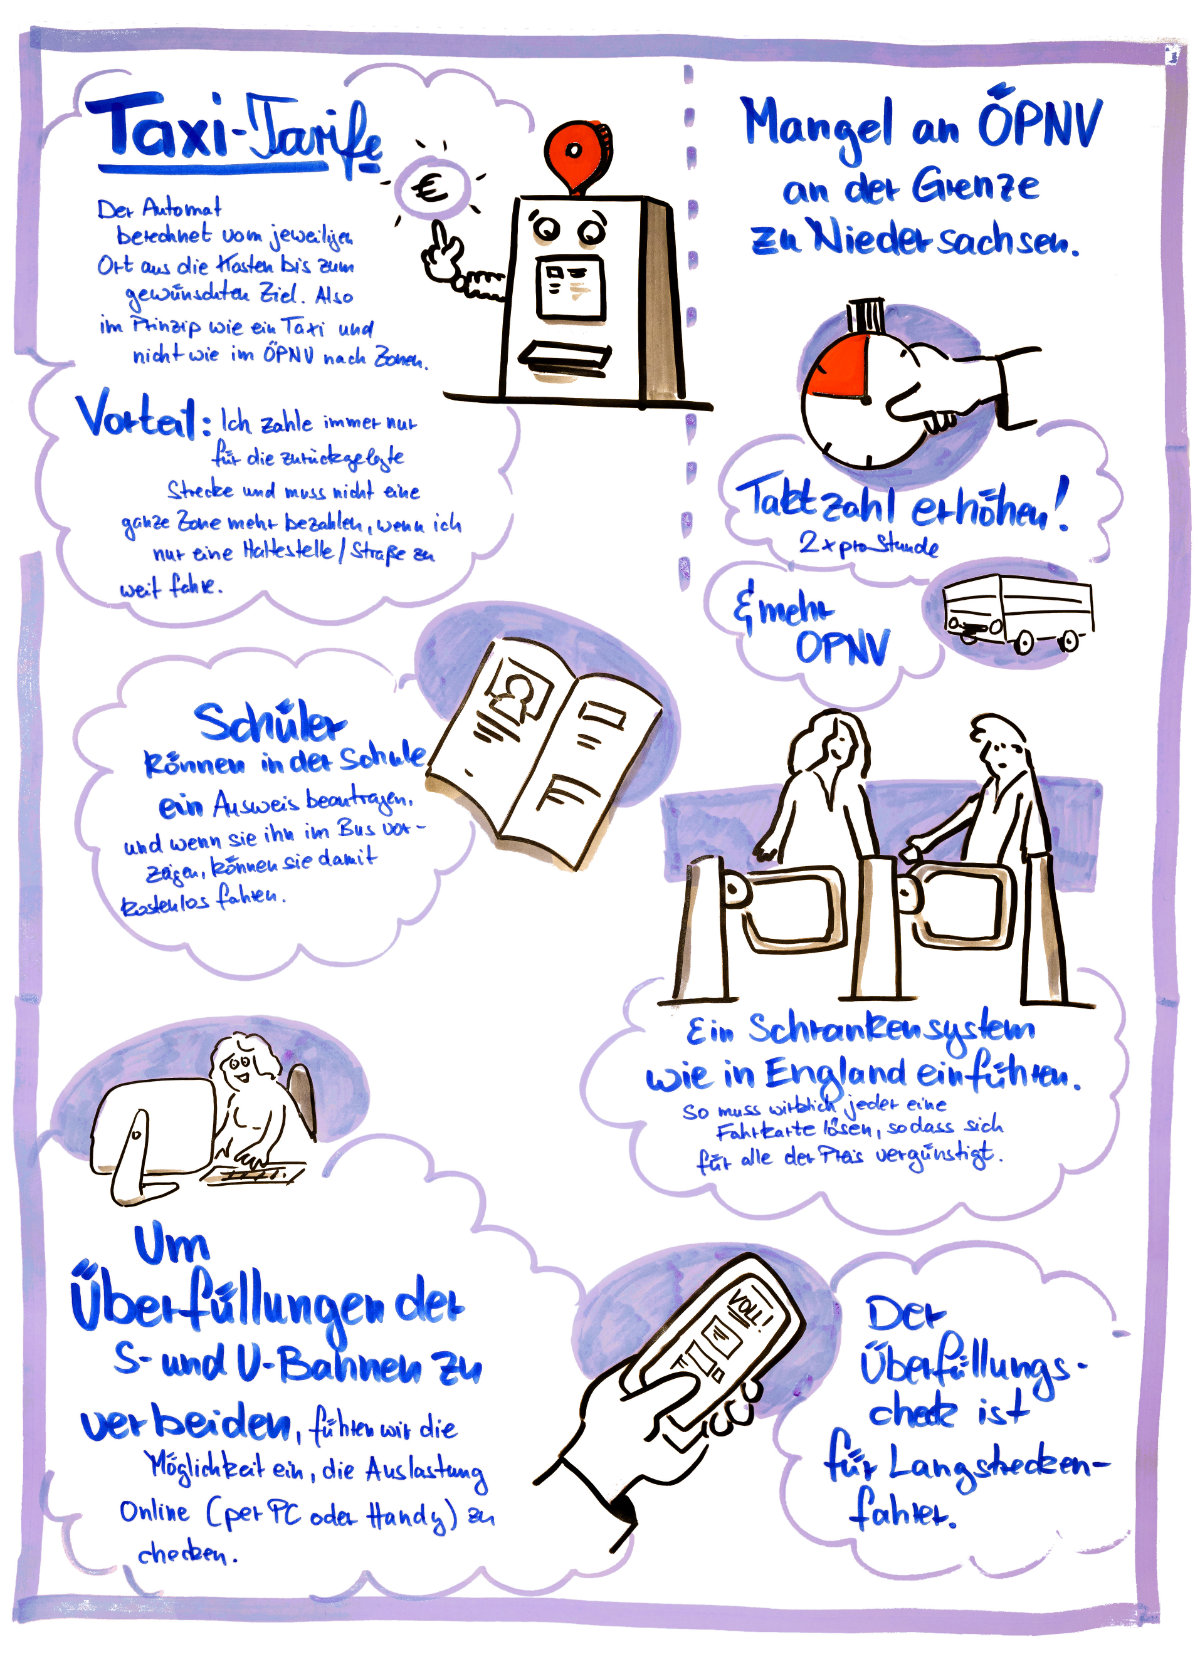 Taxi-Tarife
Der Automat
berechnet vom jeweiligen
Ort aus die Kosten bis zum
gewünschten Ziel. Also
im Prinzip wie ein Taxi und
nicht wie im ÖPNV nach Zonen.
Vorteil: Ich zahle immer nur
für die zurückgelegte
Strecke und muss nicht eine
ganze Zone mehr bezahlen, wenn ich
nur eine Haltestelle/Straße zu
weit fahre.
€
Mangel an ÖPNV
an der Grenze
zu Niedersachsen.
Taktzahl erhöhen!
2x pro Stunde
& mehr
OPNV
Schüler
können in der Schule
ein Ausweis beantragen,
und wenn sie ihn im Bus vor-
zeigen, können sie damit
kostenlos fahren.
Ein Schrankensystem
wie in England einführen.
So muss wirklich jeder eine
Fahrkarte lösen, sodass sich
für alle der Preis vergünstigt.
Um
Überfüllungen der
S- und U-Bahnen zu
verbeiden, führen wir die
Möglichkeit ein, die Auslastung
Online (per PC oder Handy) zu
checken.
VOLL!
Der
Überfüllungs-
check ist
für Langstrecken-
fahrer.